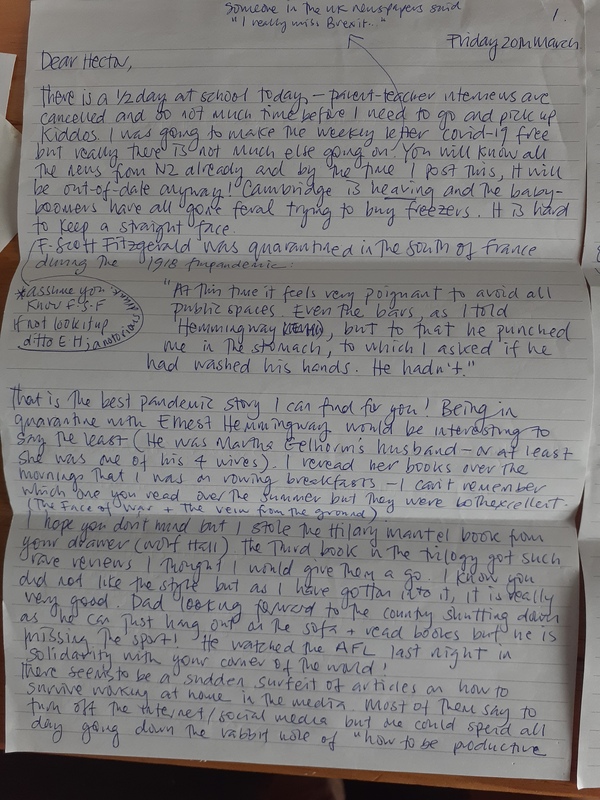 Someone in the UK newspapers said
"I really miss Brexit..."
1.
Friday 20th March
Dear Hector,
There is a 1/2 day at school today, - parent-teacher interviews are
cancelled and so not much time before I need to go and pick up
Kiddos. I was going to make the weekly letter covid-19 free
but really there is not much else going on. You will know all
the news from NZ already and by the time I post this, it will
be out-of-date anyway! Cambridge is heaving and the baby-
boomers have all gone feral trying to buy freezers. It is hard
to keep a straight face.
F. Scott Fitzgerald was quarantined in the south of France
during the 1918 flu pandemic:
*assume you
know F-S-F
if not look it up
ditto E H; a notorious
"At this time it feels very poignant to avoid all
public spaces. Even the bars, as I told
Hemmingway, but to that he punched
me in the stomach, to which I asked if he
had washed his hands. He hadn't."
That is the best pandemic story I can find for you! Being in
quarantine with Ernest Hemmingway would be interesting to
say the least (He was Martha Gelhorm's husband - or at least
she was one of his 4 wives). I reread her books over the
mornings that I was on rowing breakfasts - I can't remember
which one you read over the summer but they were both excellent.
(The Face of War + The View from the ground)
I hope you don't mind but I stole the Hilary Mantel book from
your drawer (Wolf Hall). The Third book in the trilogy got such
rave reviews I thought I would give them a go. I know you
did not like the style but as I have gotten into it, it is really
very good. Dad looking forward to the country shutting down
as he can just hang out on the sofa + read books but he is
missing the sport! He watched the AFL last night in
solidarity with your corner of the world!
There seems to be a sudden surfeit of articles on how to
survive working at home in the media. Most of them say to
turn off the internet/social media but one could spend all
day going down the rabbit hole of "how to be productive